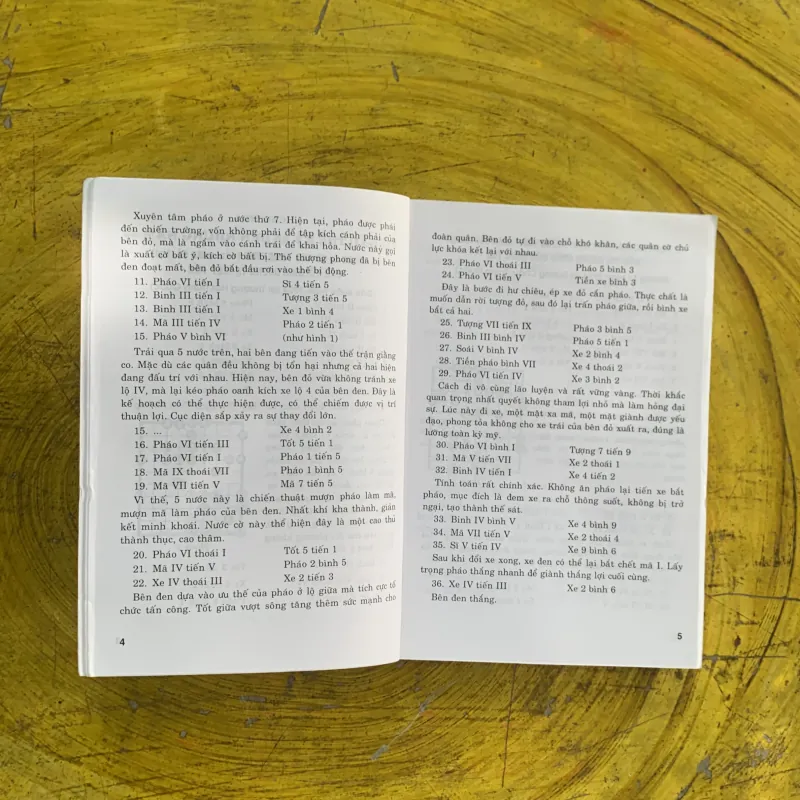 Xuyên tâm pháo ở nước thứ 7. Hiện tại, pháo được phái
đến chiến trường, vốn không phải để tập kích cánh phải của
bên đỏ, mà là ngầm vào cánh trái để khai hỏa. Nước này gọi
là xuất cờ bất ý, kích cờ bất bị. Thế thượng phong đã bị bên
đen đoạt mất, bên đỏ bắt đầu rơi vào thế bị động.
11. Pháo VI tiến I Sĩ 4 tiến 5
12. Binh III tiến I Tượng 3 tiến 5
13. Binh III tiến I Xe 1 bình 4
14. Mã III tiến IV Pháo 2 tiến 1
15. Pháo V bình VI (như hình 1)
Trải qua 5 nước trên, hai bên đang tiến vào thế trận giằng
co. Mặc dù các quân đều không bị tổn hại nhưng cả hai hiện
đang đấu trí với nhau. Hiện nay, bên đỏ vừa không tránh xe
lộ IV, mà lại kéo pháo oanh kích xe lộ 4 của bên đen. Đây là
kế hoạch có thể thực hiện được, có thể chiếm được vị trí
thuận lợi. Cục diện sắp xảy ra sự thay đổi lớn.
15. ... Xe 4 bình 2
16. Pháo VI tiến III Tốt 5 tiến 1
17. Pháo VI tiến I Pháo 1 tiến 5
18. Mã IX thoái VII Pháo 1 bình 5
19. Mã VII tiến V Mã 7 tiến 5
Vì thế, 5 nước này là chiến thuật mượn pháo làm mã,
mượn mã làm pháo của bên đen. Nhất khí kha thành, gián
kết minh khoái. Nước cờ này thể hiện đây là một cao thủ
thành thục, cao thâm.
20. Pháo VI thoái I Tốt 5 tiến 1
21. Mã IV tiến V Pháo 2 bình 5
22. Xe IV thoái III Xe 2 tiến 3
Bên đen dựa vào ưu thế của pháo ở lộ giữa mà tích cực tổ
chức tấn công. Tốt giữa vượt sông tăng thêm sức mạnh cho
4
đoàn quân. Bên đỏ tự đi vào chỗ khó khăn, các quân cờ chủ
lực khóa kết lại với nhau.
23. Pháo VI thoái III Pháo 5 bình 3
24. Pháo VI tiến V Tiền xe bình 3
Đây là bước đi hư chiêu, ép xe đỏ cắn pháo. Thực chất là
muốn dẫn rời tượng đỏ, sau đó lại trấn pháo giữa, rồi bình xe
bắt cả hai.
25. Tượng VII tiến IX Pháo 3 bình 5
26. Binh III bình IV Pháo 5 tiến 1
27. Soái V bình IV Xe 2 bình 4
28. Tiền pháo bình VII Xe 4 thoái 2
29. Pháo VI tiến IV Xe 3 bình 2
Cách đi vô cùng lão luyện và rất vững vàng. Thời khắc
quan trọng nhất quyết không tham lợi nhỏ mà làm hỏng đại
sự. Lúc này đi xe, một mặt xa mã, một mặt giành được yếu
đạo, phong tỏa không cho xe trái của bên đỏ xuất ra, đúng là
lưỡng toàn kỳ mỹ.
30. Pháo VI bình I Tượng 7 tiến 9
31. Mã V tiến VII Xe 2 thoái 1
32. Binh IV tiến I Xe 4 tiến 2
Tính toán rất chính xác. Không ăn pháo lại tiến xe bắt
pháo, mục đích là đem xe ra chỗ thông suốt, không bị trở
ngại, tạo thành thế sát.
33. Binh IV bình V Xe 4 bình 9
34. Mã VII tiến V Xe 2 thoái 4
35. Sĩ V tiến IV Xe 9 bình 6
Sau khi đổi xe xong, xe đen có thể lại bắt chết mã I. Lấy
trọng pháo thắng nhanh để giành thắng lợi cuối cùng.
36. Xe IV tiến III Xe 2 bình 6
Bên đen thắng.
5